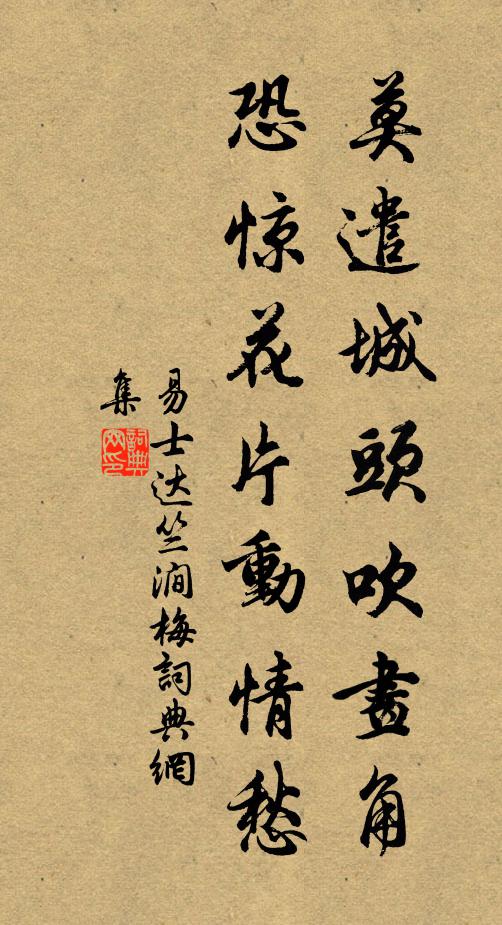 莫遣城頭吹畫角
恐惊花片動情愁
易士达竺澗梅詞典網
集
詞典
网印